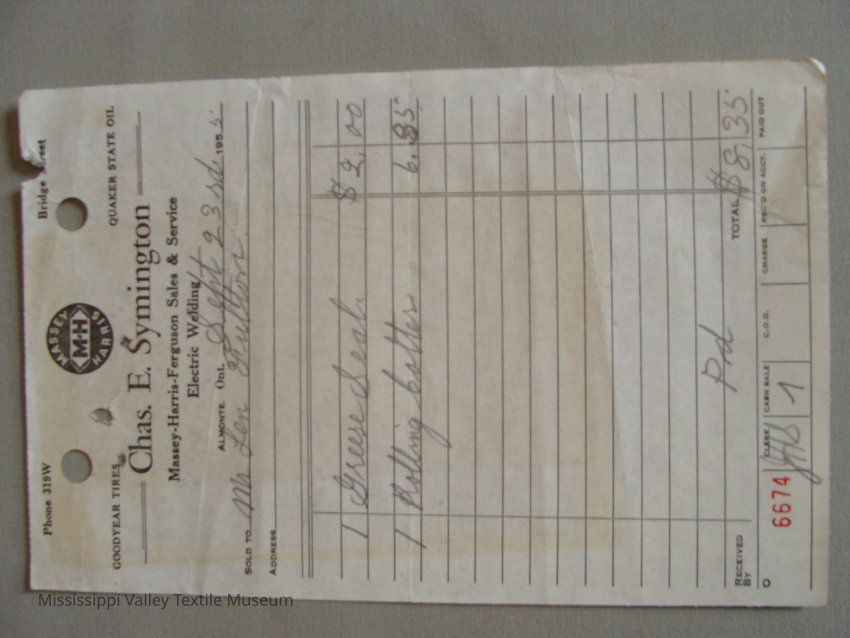 Phone 319W Bridge Street
MASSEY M-H HARRIS
GOODYEAR TIRES QUAKER STATE OIL
Chas. E. Symington
Massey-Harris-Ferguson Sales & Service
Electric Welding
ALMONTE, Ont. Sept 23rd 1955
SOLD TO Mr Len
ADDRESS
1 Greese Seal $2.00
1 Rolling 6.35
Pd
RECEIVED BY TOTAL $8.35
CLERK CASH SALE C.O.D. CHARGE REC'D ON ACCT. PAID OUT
6674 1
Mississippi Valley Textile Museum